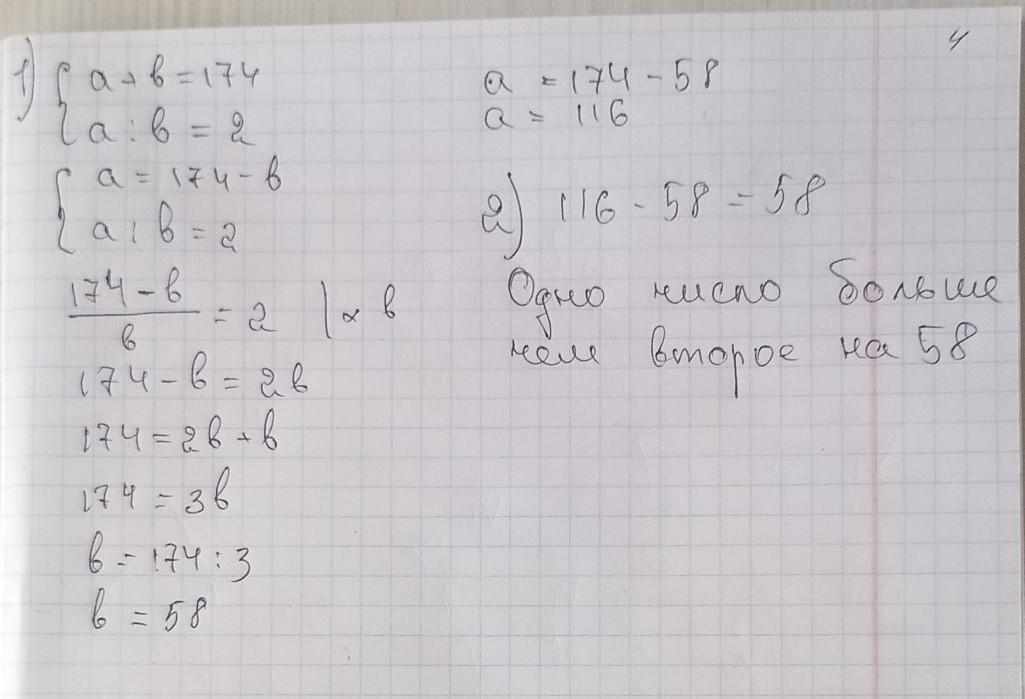 4
1) { a + b = 174
a : b = 2
{ a = 174 - b
a : b = 2
174 - b
b
= 2 | × b
174 - b = 2b
174 = 2b + b
174 = 3b
b = 174 : 3
b = 58
a = 174 - 58
a = 116
2) 116 - 58 = 58
Одно число больше
чем второе на 58